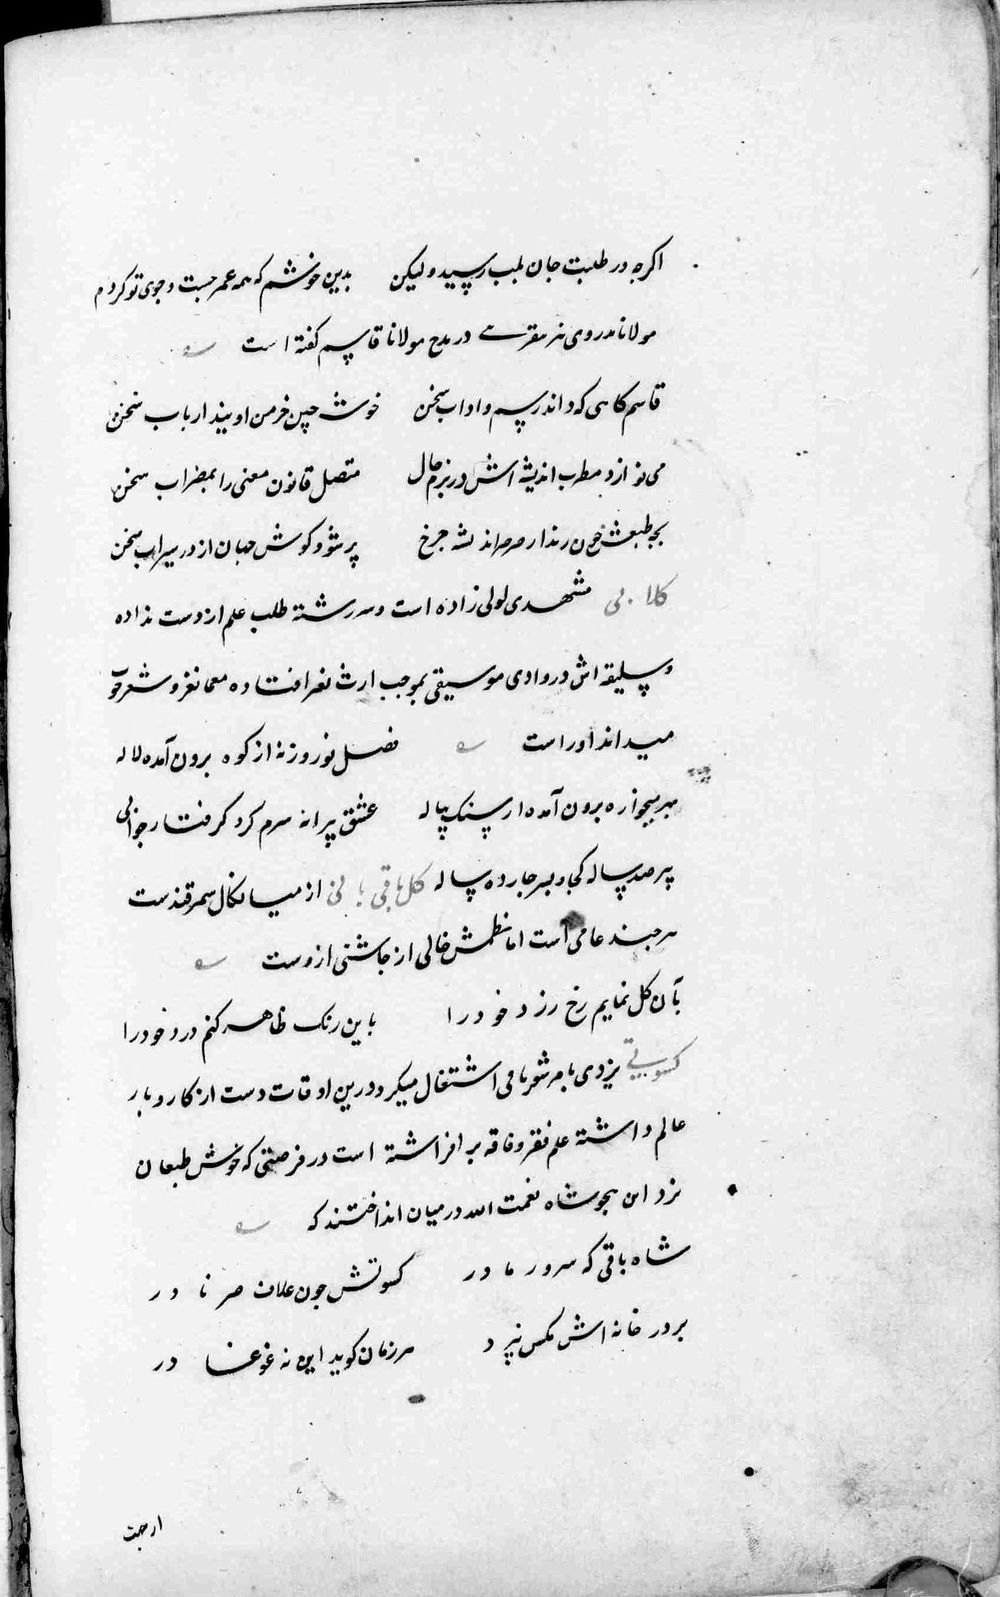 اکرچه در طلبت جان بلب رسید ولیکن بدین خوشم که همه عمر جست و جوی تو کردم
مولانا در مدح مولانا قاسم کفته است
قاسم کاهی که داند رسم و اداب سخن خوشه چین خرمن اویند ارباب سخن
می نوازد مطرب اندیشه اش در بزم حال متصل قانون معنی را بمضراب سخن
طبعش چون چرخ پر شود کوش جهان از در سیراب سخن
مشهدی لولی زاده است و سر رشته طلب علم از دست نداده
و سلیقه اش در وادی موسیقی بموجب ارث افتاده معما نغز و شعر خوب
میداند او راست فصل نوروز نه از کوه برون آمده لاله
بهر برون آمده از سنک پیاله عشق پیرانه سرم کرد کرفتار جوانی
پیر صد ساله کجا و پسر چارده ساله کل باقی از سمرقندست
هر چند عامی است اما نظمش خالی از چاشنی ازوست
بآن کل نمایم رخ زرد خود را باین رنک ظاهر کنم درد خود را
کسوتی یزدی اشتغال میکرد و درین اوقات دست از کاروبار
عالم داشته علم فقر و فاقه بر افراشته است در فرصتی که خوش طبعان
یزد این هجو شاه نعمت الله در میان انداختند که
شاه باقی که سرور مادر کسوتش چون غلاف در
بر در خانه اش مکس نپرد هر زمان کوید این نه غوغا در